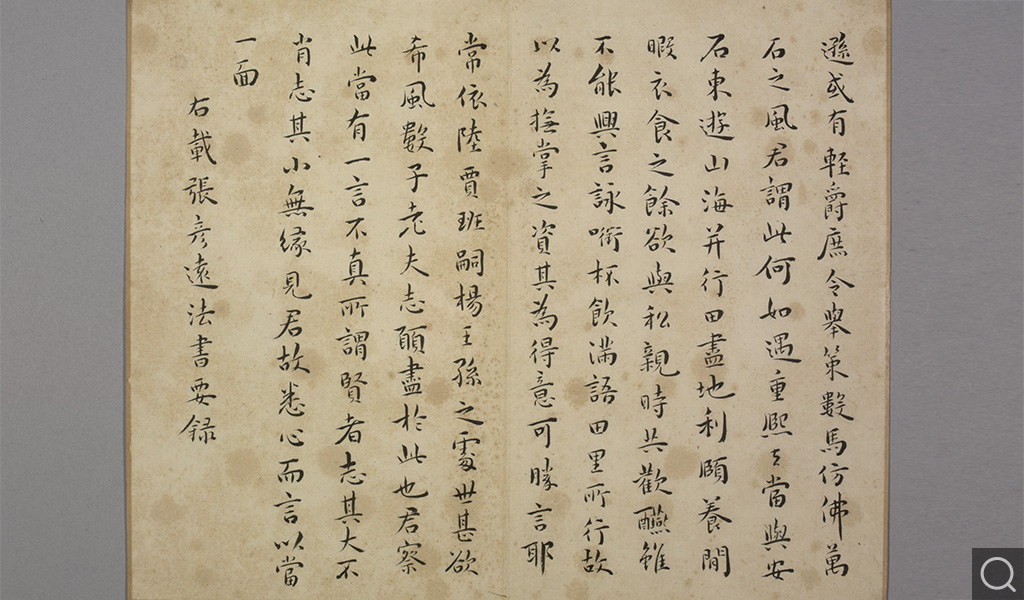 遜或有輕爵庶令舉策數馬仿佛萬
石之風君謂此何如遇重熙々當與安
石東遊山海并行田盡地利頤養閒
暇衣食之餘欲與私親時共歡醼雖
不能興言詠啣杯飲滿語田里所行故
以為撫掌之資其為得意可勝言耶
常依陸賈班嗣楊王孫之處世甚欲
希風數子老夫志願盡於此也君察
此當有一言不真所謂賢者志其大不
肖志其小無緣見君故悉心而言以當
一面
右載張彥遠法書要録